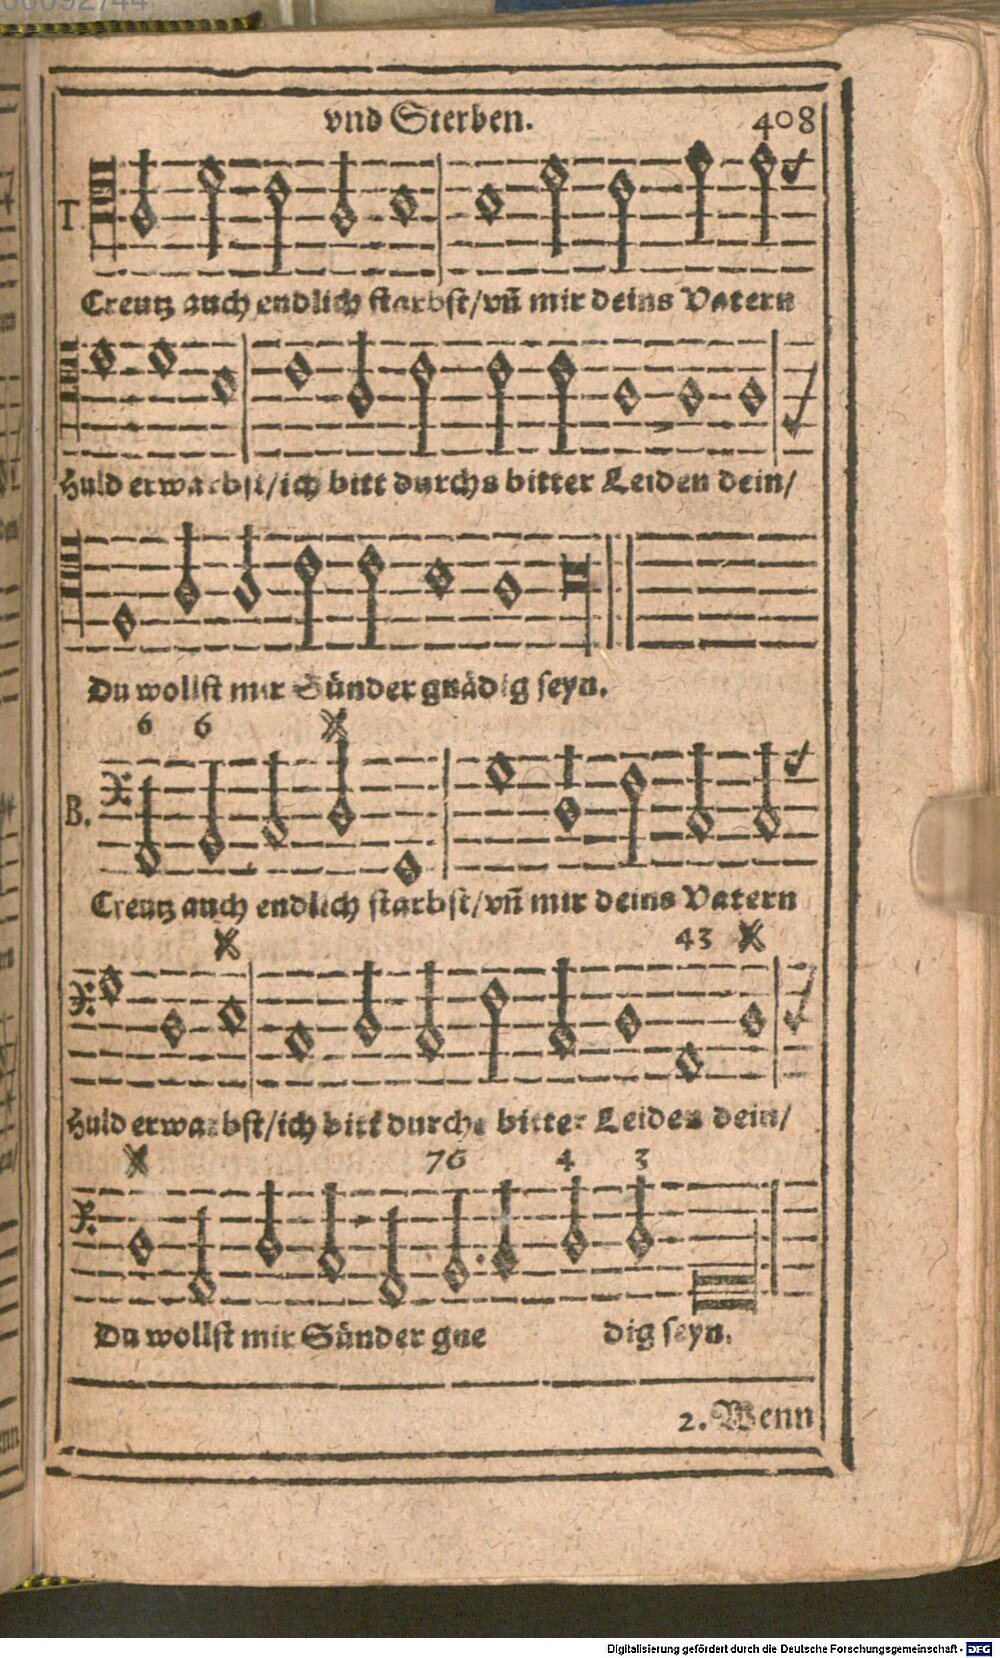 vnd Sterben. 408
T.
Creutz auch endlich starbst/vn̄ mir deins Vatern
Huld erwarbst/ich bitt durchs bitter Leiden dein/
Du wollst mir Sünder gnädig seyn.
6 6
B.
Creutz auch endlich starbst/vn̄ mir deins Vatern
43
Huld erwarbst/ich bitt durchs bitter Leiden dein/
76 4 3
Du wollst mir Sünder gne dig seyn.
2. Wenn
Digitalisierung gefördert durch die Deutsche Forschungsgemeinschaft - DFG